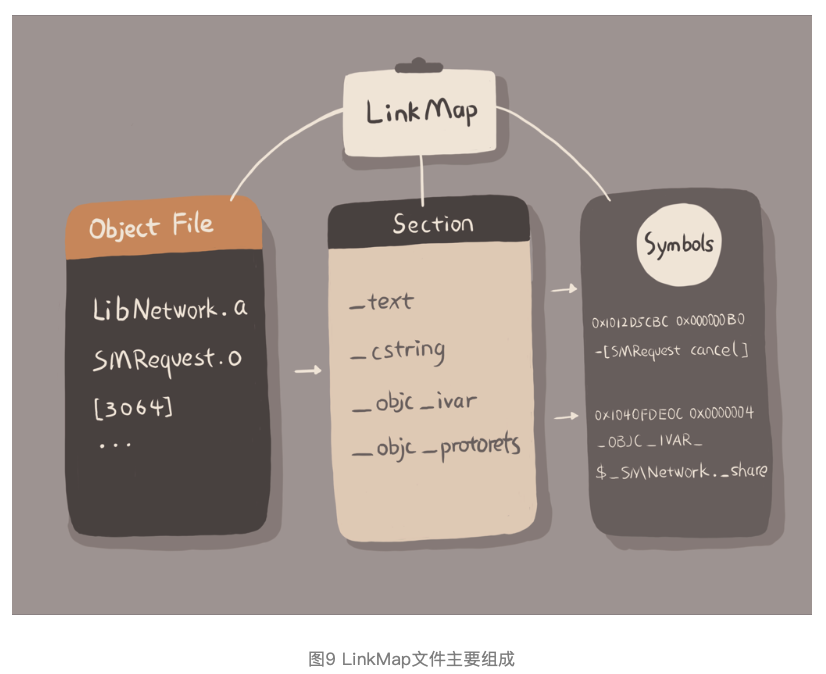 LinkMap
Object File
LibNetwork.a
SMRequest.o
[3064]
...
Section
_text
_cstring
_objc_ivar
_objc_protorets
Symbols
0x1012D5CBC 0x000000B0
-[SMRequest cancel]
0x1040FDE0C 0x0000004
_OBJC_IVAR_
$_SMNetwork._share
图9 LinkMap文件主要组成